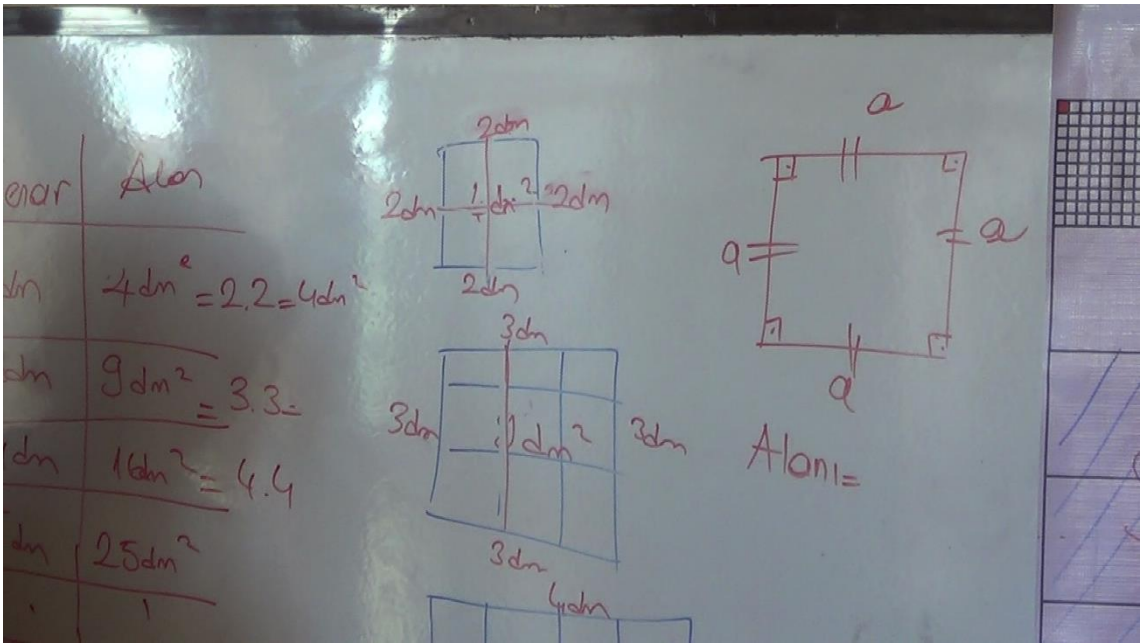 enar Alan
dm 4dm² = 2.2 = 4dm²
dm 9dm² = 3.3 =
dm 16dm² = 4.4
dm 25dm²
2dm
2dm 2dm
2dm
3dm
3dm 1dm² 3dm
3dm
4dm
a
a a
a
Alanı =